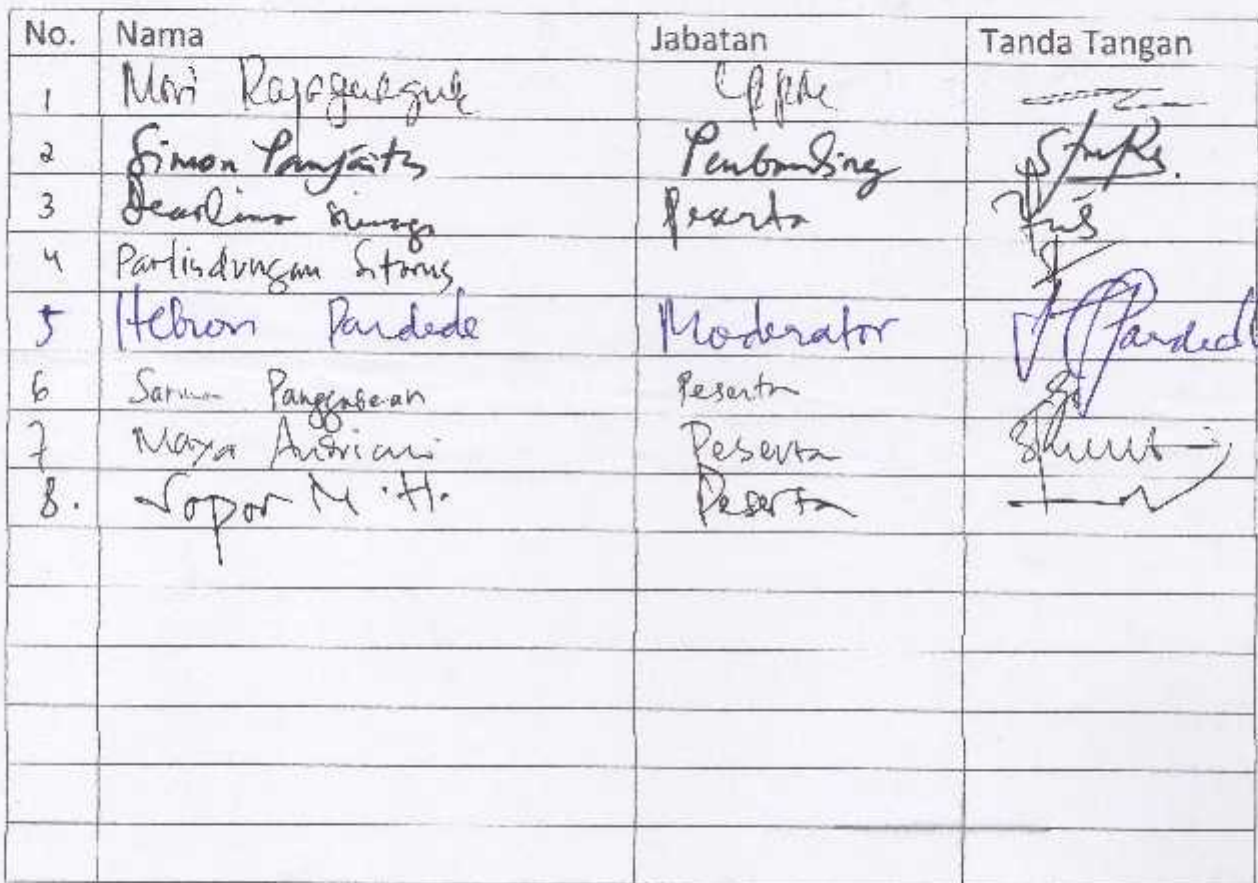 No. Nama Jabatan Tanda Tangan
1 Mori Rajagukguk
2 Simon Panjaitan Pembanding
3 Dearlina Sinaga Peserta
4 Partisdungan Sitorus
5 Hebron Pardede Moderator Pardede
6 Panggabean Peserta
7 Maya Andriani Peserta
8. Sopar M.H. Peserta